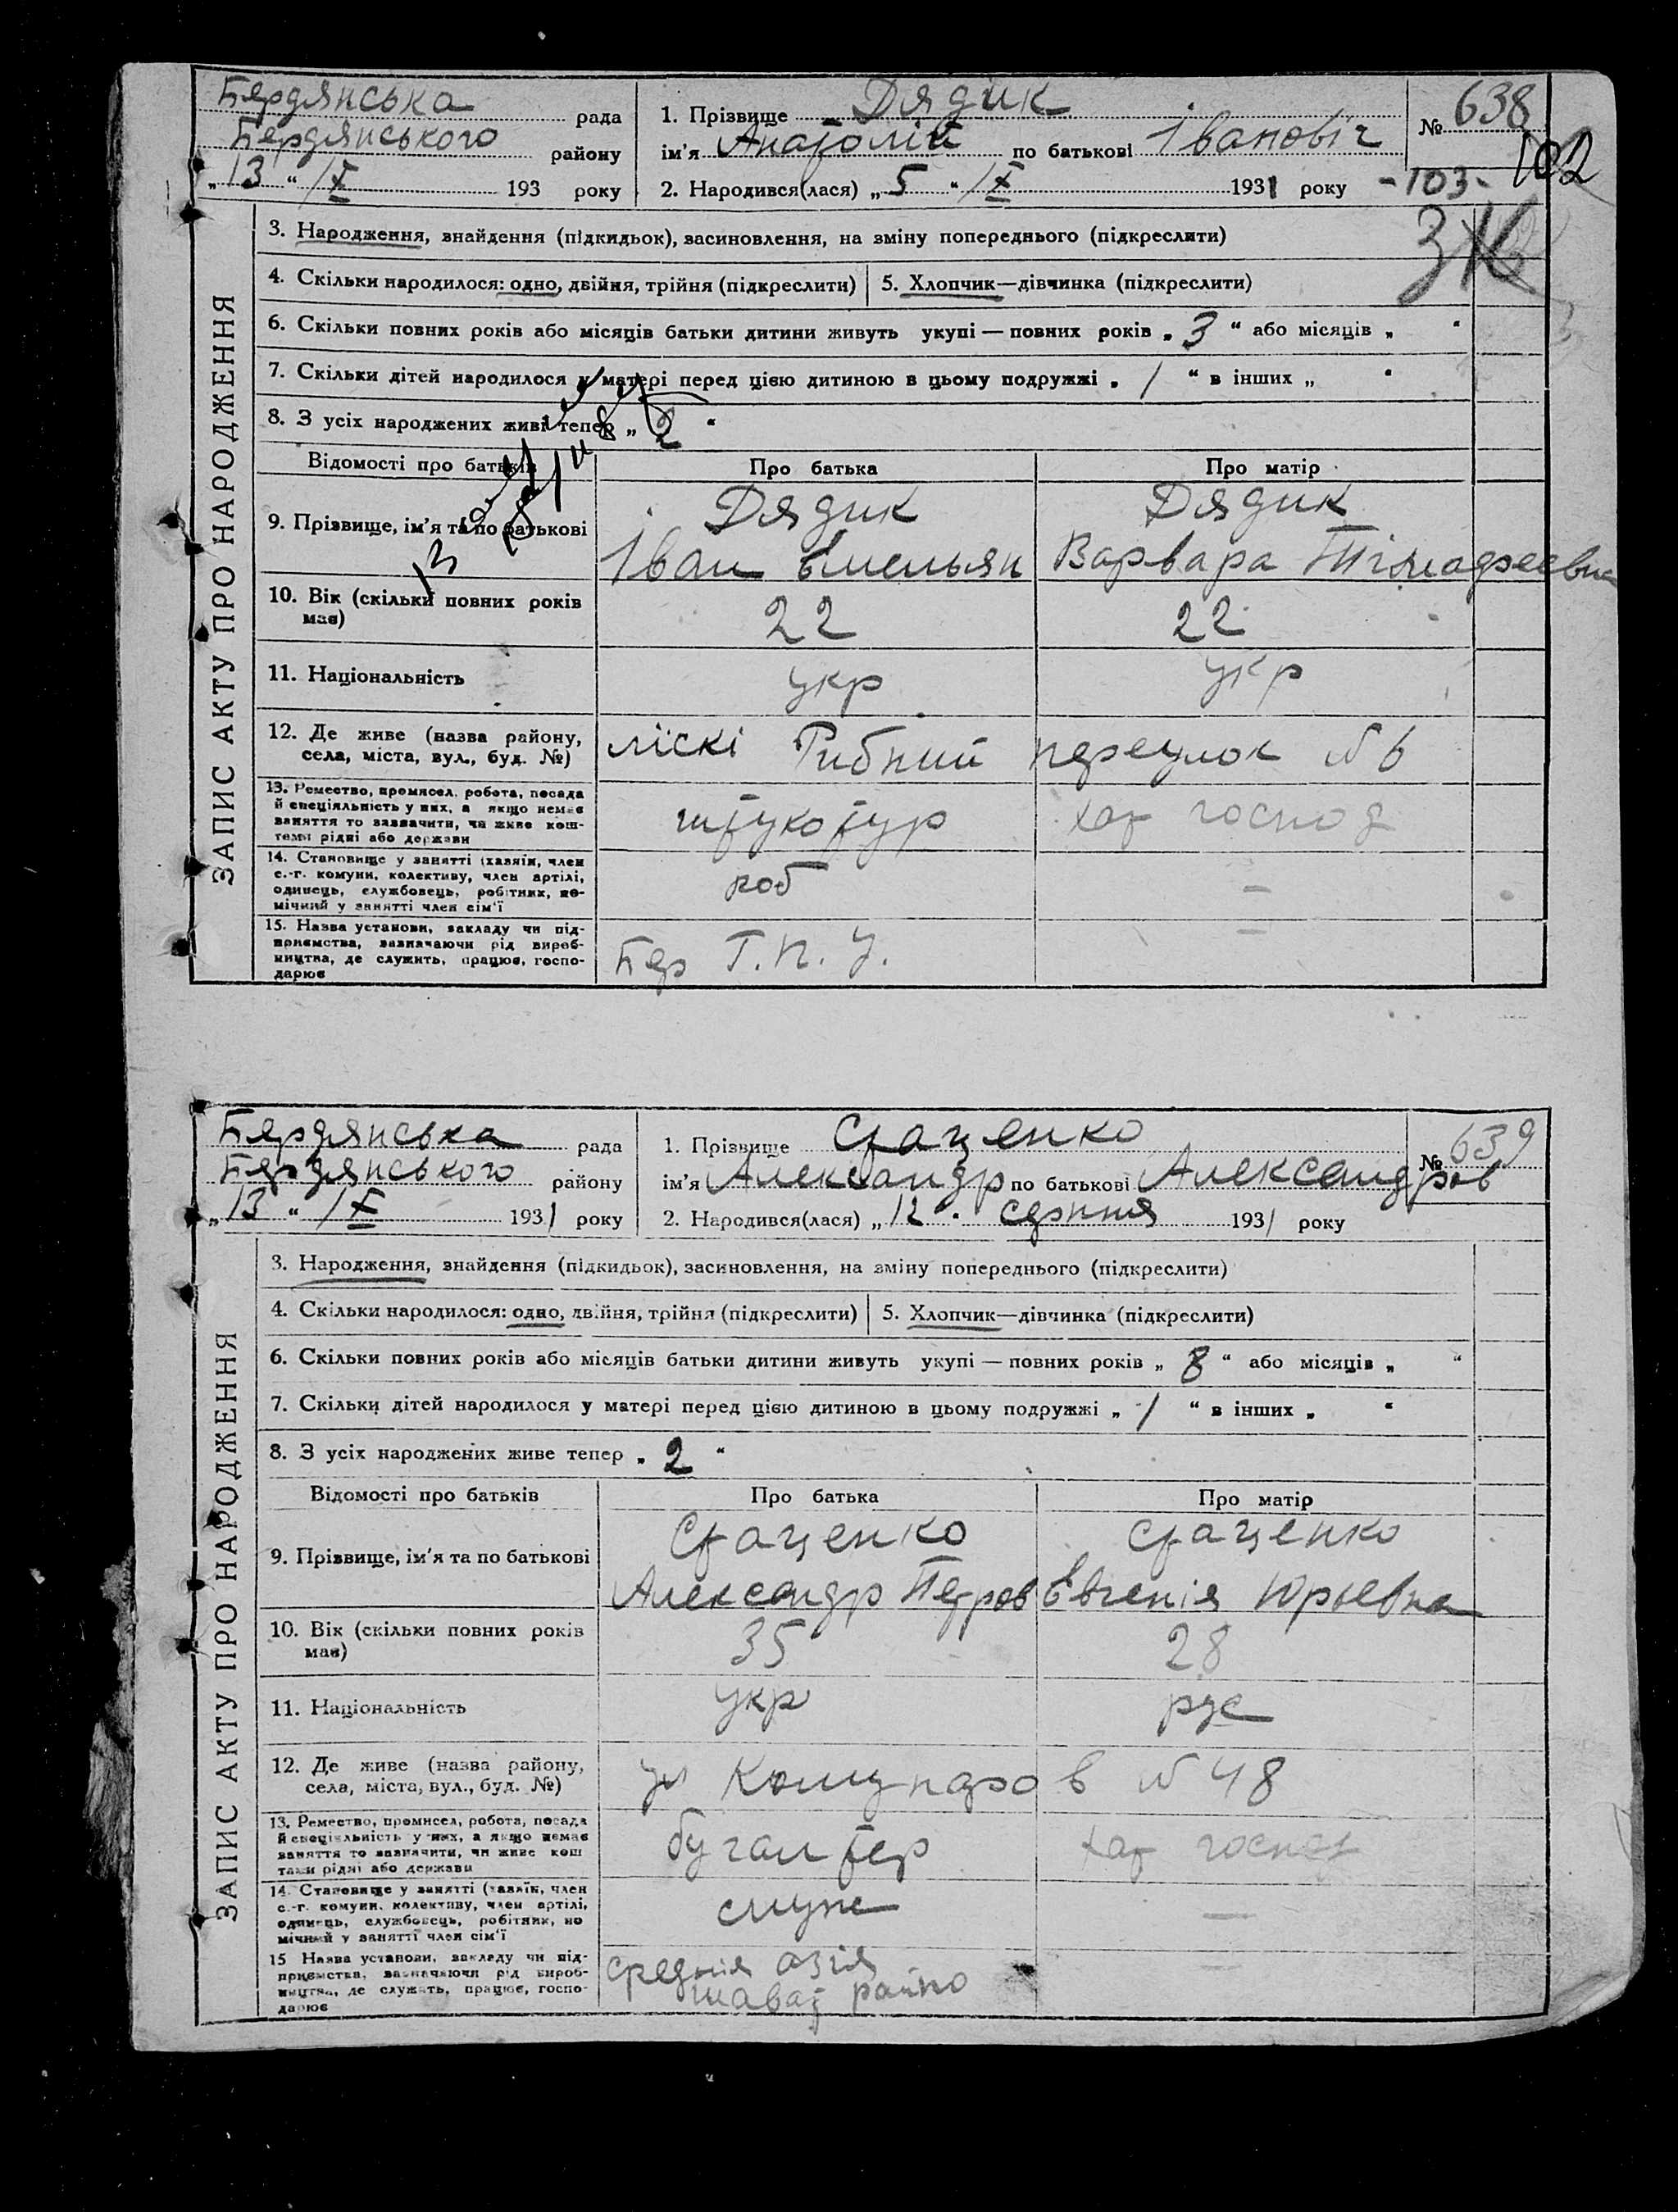 Бердянська рада
Бердянського району
„13“ IX 193 року
1. Прізвище Дядик
ім'я Анатолій по батькові Івановіч
2. Народився(лася) „5“ IX 1931 року
№ 638
102
-103-
ЗАПИС АКТУ ПРО НАРОДЖЕННЯ
3. Народження, знайдення (підкидьок), засиновлення, на зміну попереднього (підкреслити)
4. Скільки народилося: одно, двійня, трійня (підкреслити)
5. Хлопчик—дівчинка (підкреслити)
6. Скільки повних років або місяців батьки дитини живуть укупі — повних років „3“ або місяців „ “
7. Скільки дітей народилося у матері перед цією дитиною в цьому подружжі „1“ в інших „ “
8. З усіх народжених живе тепер „2“
Відомості про батьків
Про батька
Про матір
9. Прізвище, ім'я та по батькові
Дядик
Іван Емельян
Дядик
Варвара
10. Вік (скільки повних років
має)
22
22
11. Національність
укр
укр
12. Де живе (назва району,
села, міста, вул., буд. №)
ліскі Рибний переулок № 6
13. Ремество, промисел, робота, посада
й спеціяльність у них, а якщо немає
заняття то зазначити, чи живе кош-
тами рідні або держави
штукотур
хат господ
14. Становище у занятті (хазяїн, член
с.-г. комуни, колективу, член артілі,
одинець, службовець, робітник, по-
мічний у занятті член сім'ї
роб
—
15. Назва установи, закладу чи під-
приємства, зазначаючи рід вироб-
ництва, де служить, працює, госпо-
дарює
Бер Г.П.У.
—
Бердянська рада
Бердянського району
„13“ IX 1931 року
1. Прізвище Стаценко
ім'я Александр по батькові Александров
2. Народився(лася) „12“ серпня 1931 року
№ 639
ЗАПИС АКТУ ПРО НАРОДЖЕННЯ
3. Народження, знайдення (підкидьок), засиновлення, на зміну попереднього (підкреслити)
4. Скільки народилося: одно, двійня, трійня (підкреслити)
5. Хлопчик—дівчинка (підкреслити)
6. Скільки повних років або місяців батьки дитини живуть укупі — повних років „8“ або місяців „ “
7. Скільки дітей народилося у матері перед цією дитиною в цьому подружжі „1“ в інших „ “
8. З усіх народжених живе тепер „2“
Відомості про батьків
Про батька
Про матір
9. Прізвище, ім'я та по батькові
Стаценко
Александр Петров
Стаценко
Евгенія Юрьевна
10. Вік (скільки повних років
має)
35
28
11. Національність
укр
рус
12. Де живе (назва району,
села, міста, вул., буд. №)
ул Комунаров № 48
13. Ремество, промисел, робота, посада
й спеціяльність у них, а якщо немає
заняття то зазначити, чи живе кош
тами рідні або держави
бугалтер
хат господ
14. Становище у занятті (хазяїн, член
с.-г. комуни, колективу, член артілі,
одинець, службовець, робітник, по
мічний у занятті член сім'ї
служ
—
15 Назва установи, закладу чи під-
приємства, зазначаючи рід вироб-
ництва, де служить, працює, госпо-
дарює
средняя азія
шават райпо
—